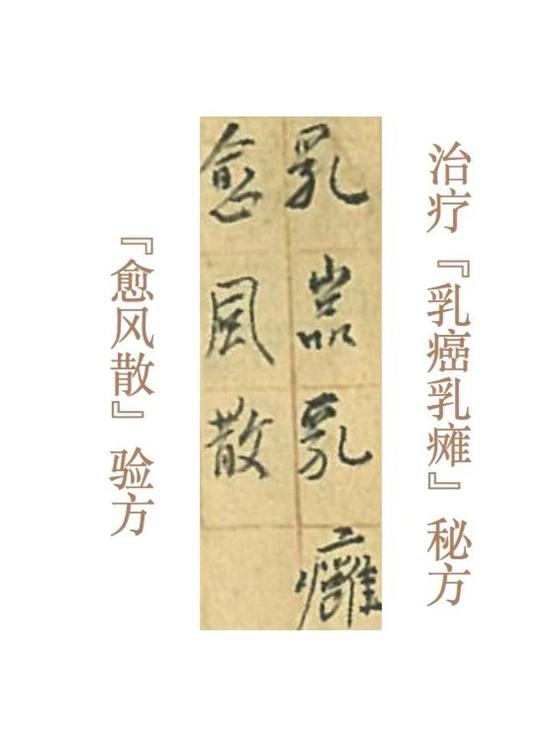 治疗『乳癌乳瘫』秘方
乳嵒乳癰
愈風散
『愈风散』验方